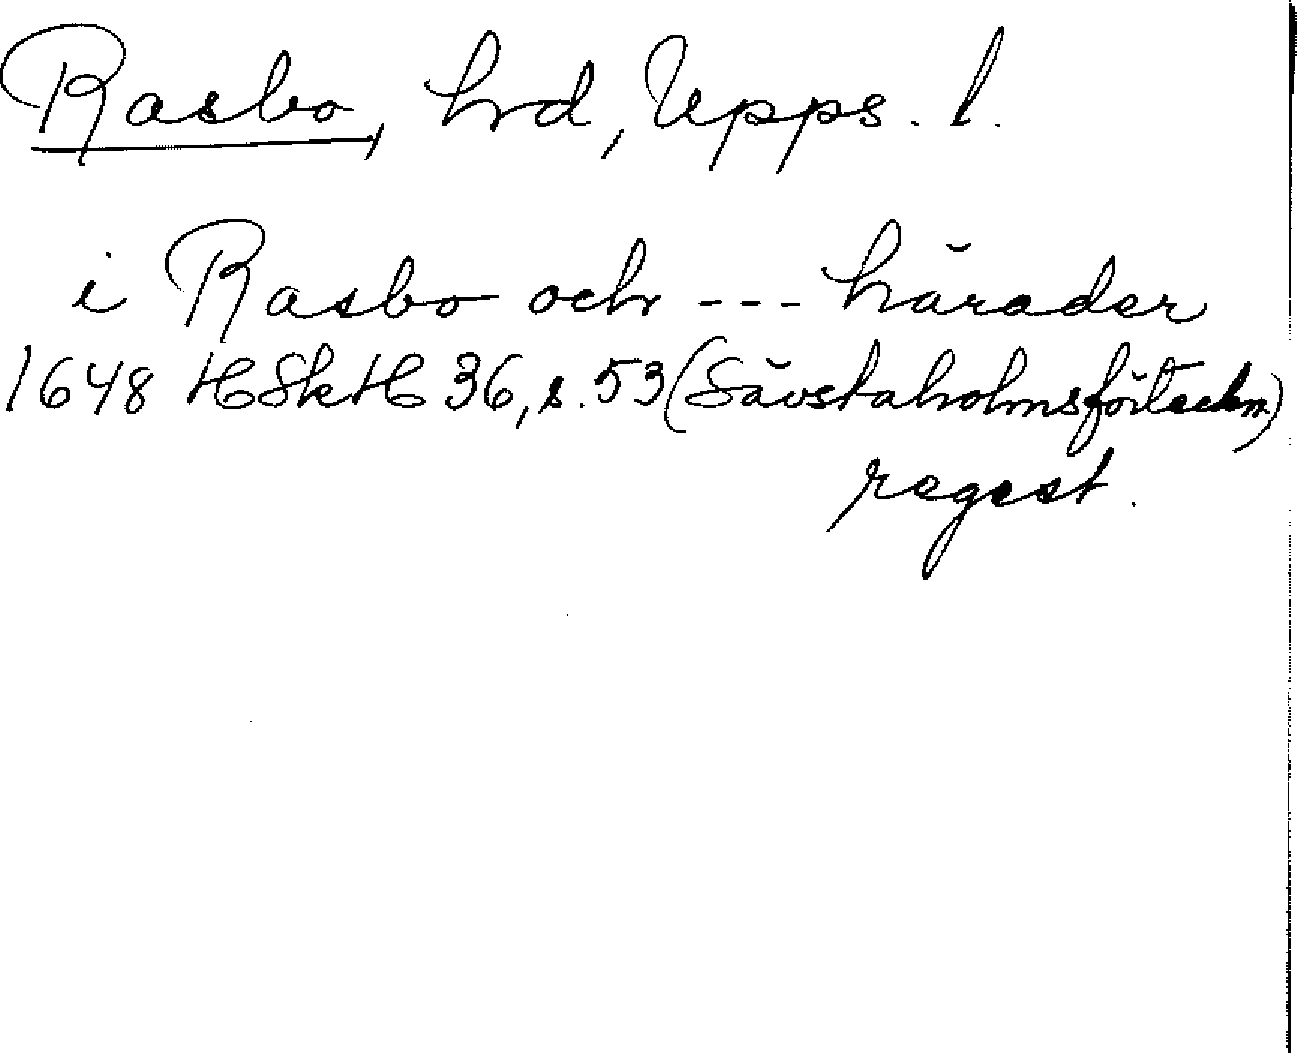 Rasbo, hrd, Upps. l.
i Rasbo och --- härader
1648 HSkH 36, s. 53 (Sävstaholmsförteckn.)
regest.